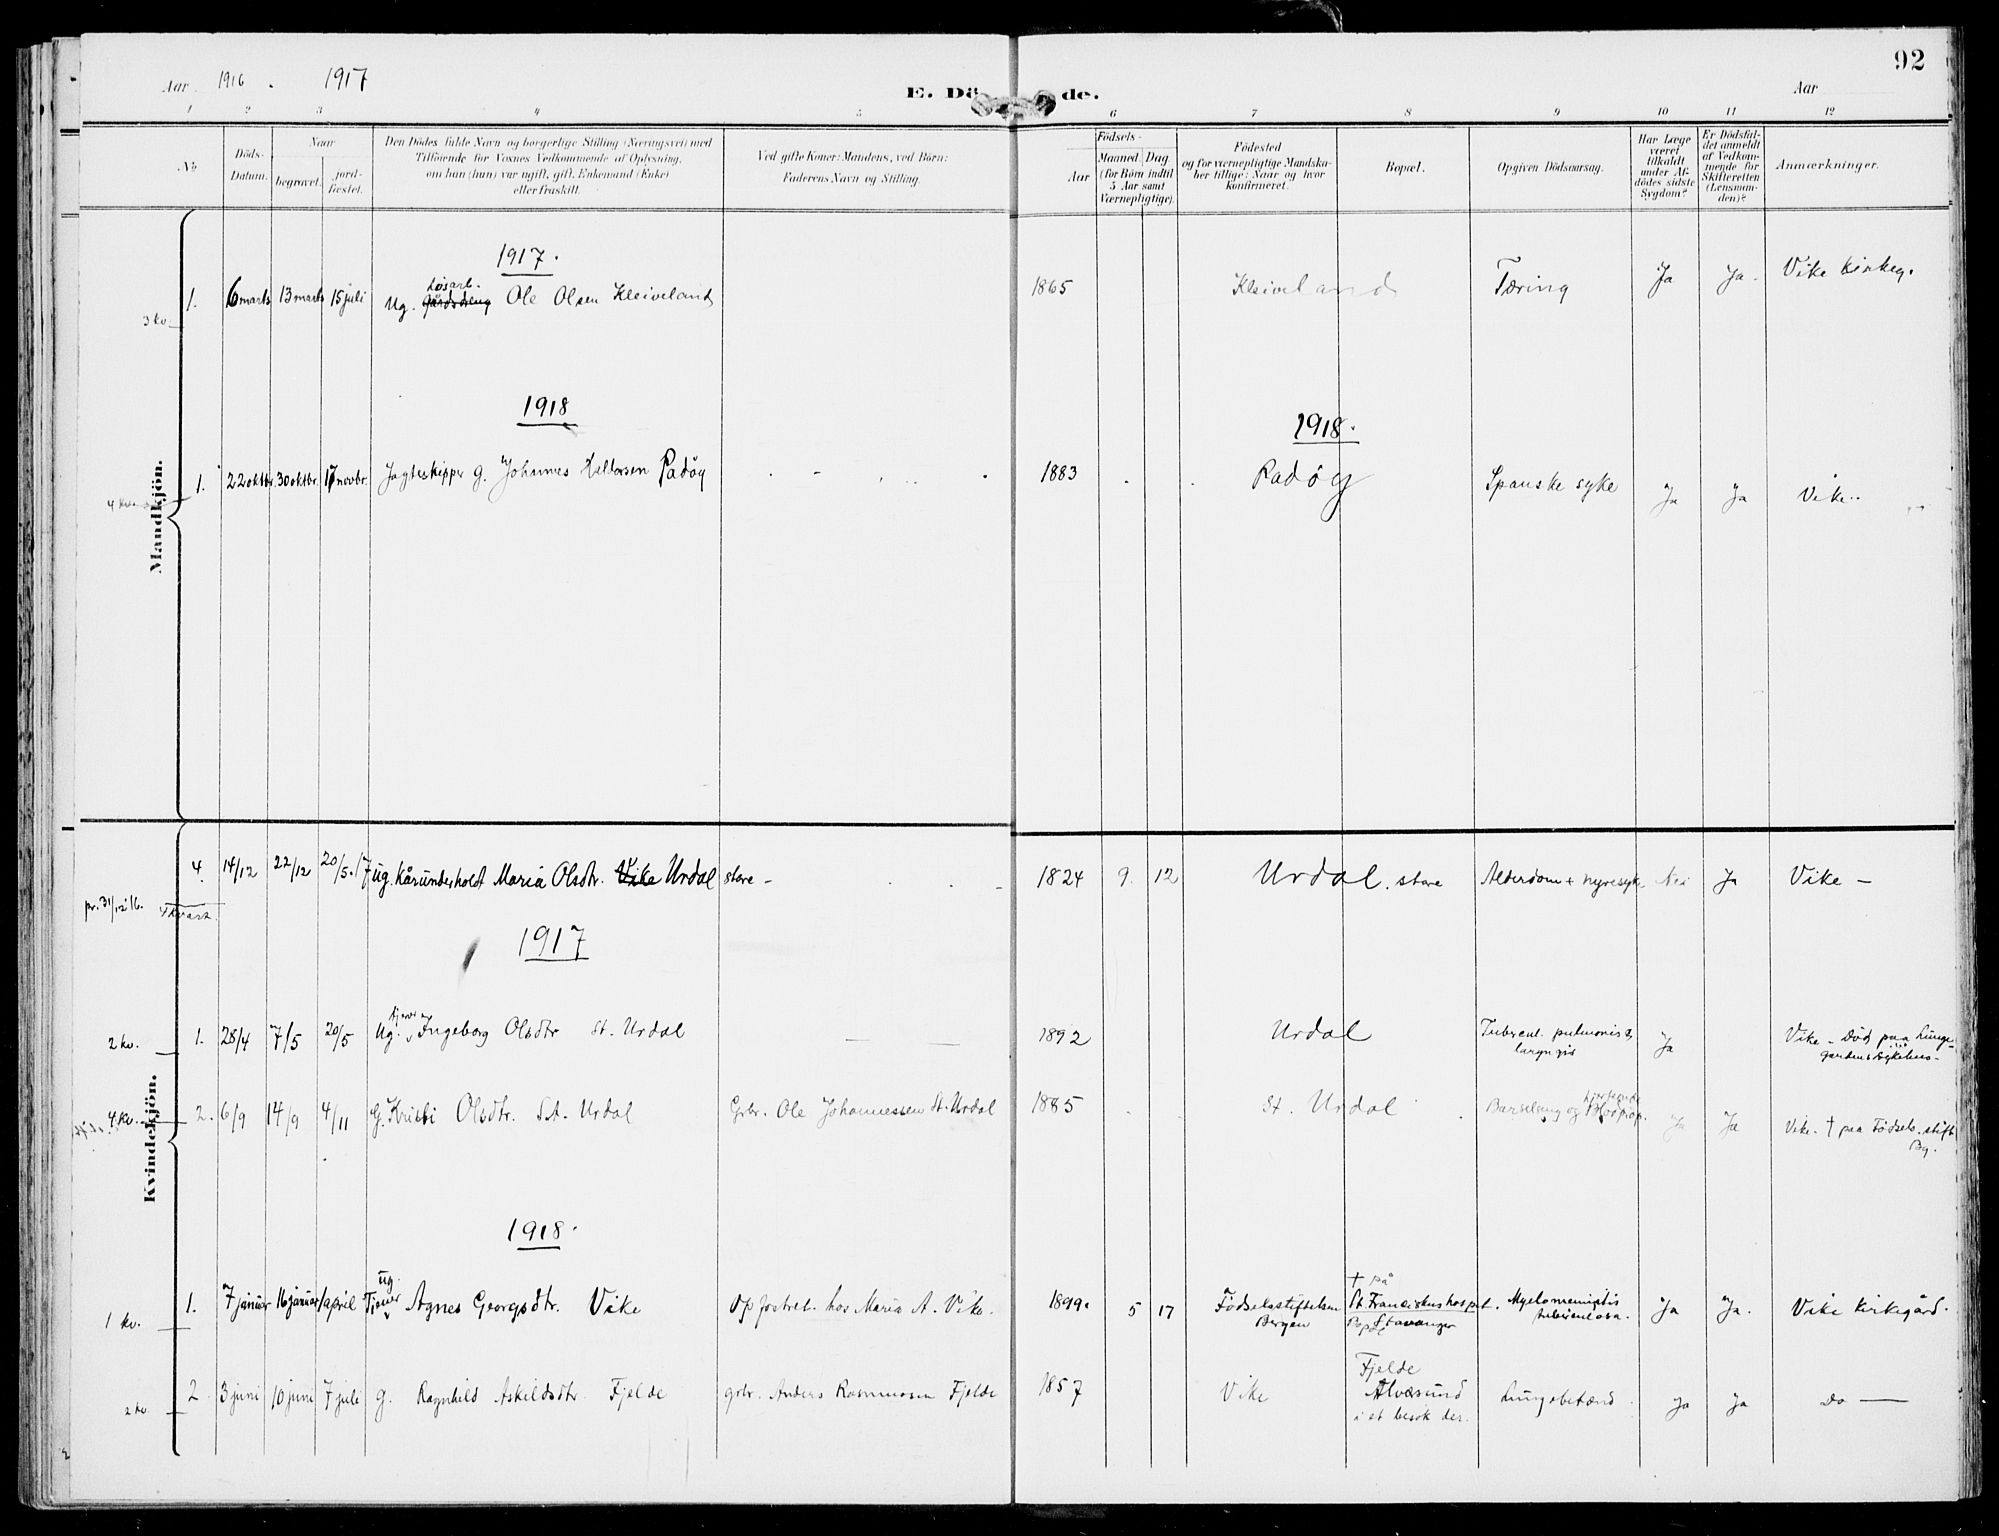 92
Aar 1916 . 1917
E. Dö de.
Aar
1 2 3 4 5 6 7 8 9 10 11 12
No
Döds-Datum.
Naar
begravet.
jord-fæstet.
Den Dödes fulde Navn og borgerlige Stilling (Næringsvei) med
Tilföiende for Voxnes Vedkommende af Oplysning,
om han (hun) var ugift, gift, Enkemand (Enke)
eller fraskilt.
Ved gifte Koner: Mandens, ved Börn:
Faderens Navn og Stilling.
Födsels-
Aar
Maaned Dag
(for Börn indtil
5 Aar samt
Værnepligtige).
Födested
og for værnepligtige Mandska-
ber tillige: Naar og hvor
konfirmeret.
Bopæl.
Opgiven Dödsaarsag.
Har Læge
været
tilkaldt
under Af-
dödes sidste
Sygdom?
Er Dödsfal-
det anmeldt
af Vedkom-
mende for
Skifteretten
(Lensman-
den)?
Anmærkninger.
Mandkjön.
1917.
3 kv. 1. 6 marts 13 marts 15 juli Ug. Gårdsdreng Løsarb. Ole Olsen Kleiveland 1865 Kleiveland Tæring Ja Ja. Vike kirkeg.
1918
1918.
4 kv. 1. 22 oktbr. 30 oktbr. 17 novbr. Jagteskipper g. Johannes Haldorsen Padöy 1883 Padöy Spanske syke Ja Ja Vike..
Kvindekjön.
4. 14/12 22/12 20/5.17 ug. kårunderholdt Maria Olsdtr. Vike Urdal store – 1824 9. 12 Urdal. store Alderdom + nyresyke Nei Ja Vike –
pr. 31/12 16. 4 kvart.
1917
2 kv. 1. 28/4 7/5 20/5 Ug. Ingeborg Olsdtr St. Urdal – – 1892 Urdal Tubercul. pulmonis &
laryngis Ja Vike – Död paa Lunge-
gardens sykehus –
4 kv. 2. 6/9 14/9 4/11 G. Kristi Olsdtr. St. Urdal Grbr. Ole Johannessen St. Urdal 1885 St. Urdal Barselseng og Blodprop. Ja Ja Vike. † paa Fødsels. stift.
Bg.
1918.
1 kv. 1. 7 januar 16 januar 1 april ug. Tjener Agnes Georgsdtr. Vike Opfostret hos Maria A. Vike. 1899. 5 17 Födselsstiftelsen
Bergen † på
St. Franciskushospit.
Stavanger Myelomeningitis
tuberculosa. Ja Ja. Vike kirkegård.
2 kv. 2 3 juni 10 juni 7 juli g. Ragnhild Askildsdtr. Fjelde grbr. Anders Rasmussen Fjelde 1857 Vike Fjelde
Alvøsund
i et besøk der. Lungebetænd. Ja Ja Do —